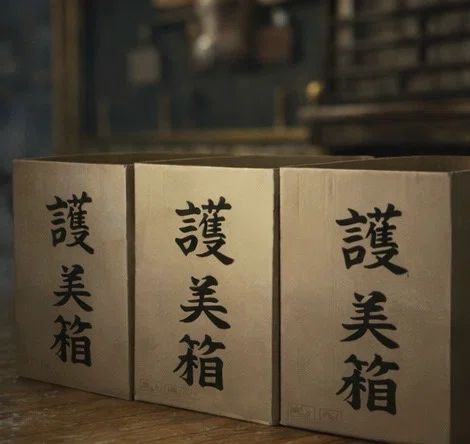 護美箱
護美箱
護美箱